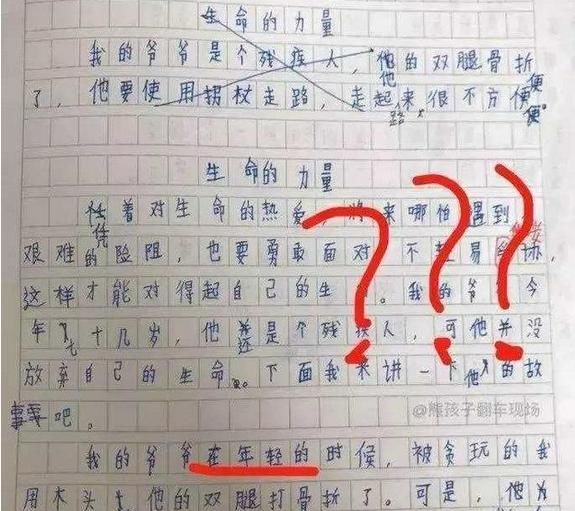 生命的力量
我的爷爷是个残疾人,他的双腿骨折
了,他要使用拐杖走路,走起路来很不方便。
生命的力量
凭着对生命的热爱,将来哪怕遇到
艰难的险阻,也要勇敢面对,不轻易妥协,
这样才能对得起自己的生命。我的爷爷今
年七十几岁,他还是个残疾人,可他并没
放弃自己的生命。下面我来讲一下他的故
事吧。
@熊孩子翻车现场
我的爷爷在年轻的时候,被贪玩的我
用木头把他的双腿打骨折了。可是,他为